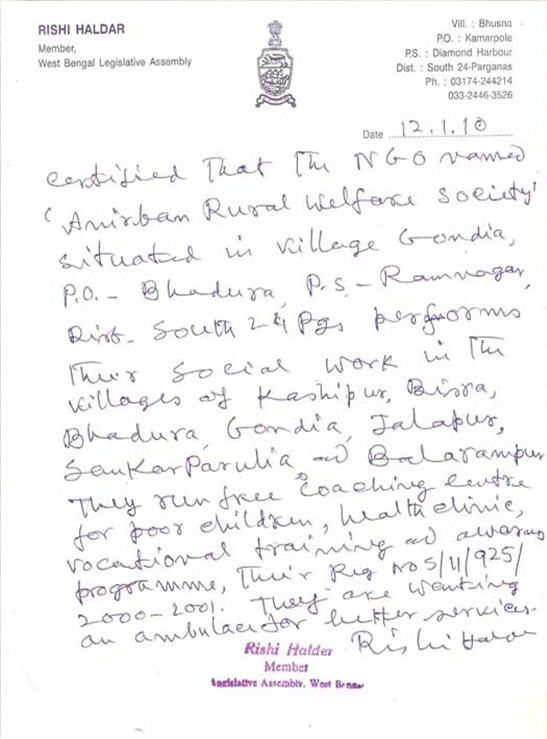 RISHI HALDAR
Member,
West Bengal Legislative Assembly
Vill. : Bhusna
P.O. : Kamarpole
P.S. : Diamond Harbour
Dist. : South 24-Parganas
Ph. : 03174-244214
033-2446-3526
Date 12.1.10
Certified that the NGO named
'Anirban Rural Welfare Society'
situated in village Gondia,
P.O.- Bhadura, P.S.- Ramnagar,
Dist- South 24 Pgs performs
their social work in the
villages of Kashipur, Bisra,
Bhadura, Gondia, Jalapur,
SankarParulia ad Balarampur
They run free coaching centre
for poor children, health clinic,
vocational training ad
programme, Their Reg No S/1L/925/
2000-2001. They are wanting
an for better services.
Rishi Haldar
Rishi Halder
Member
Legislative Assembly, West Bengal